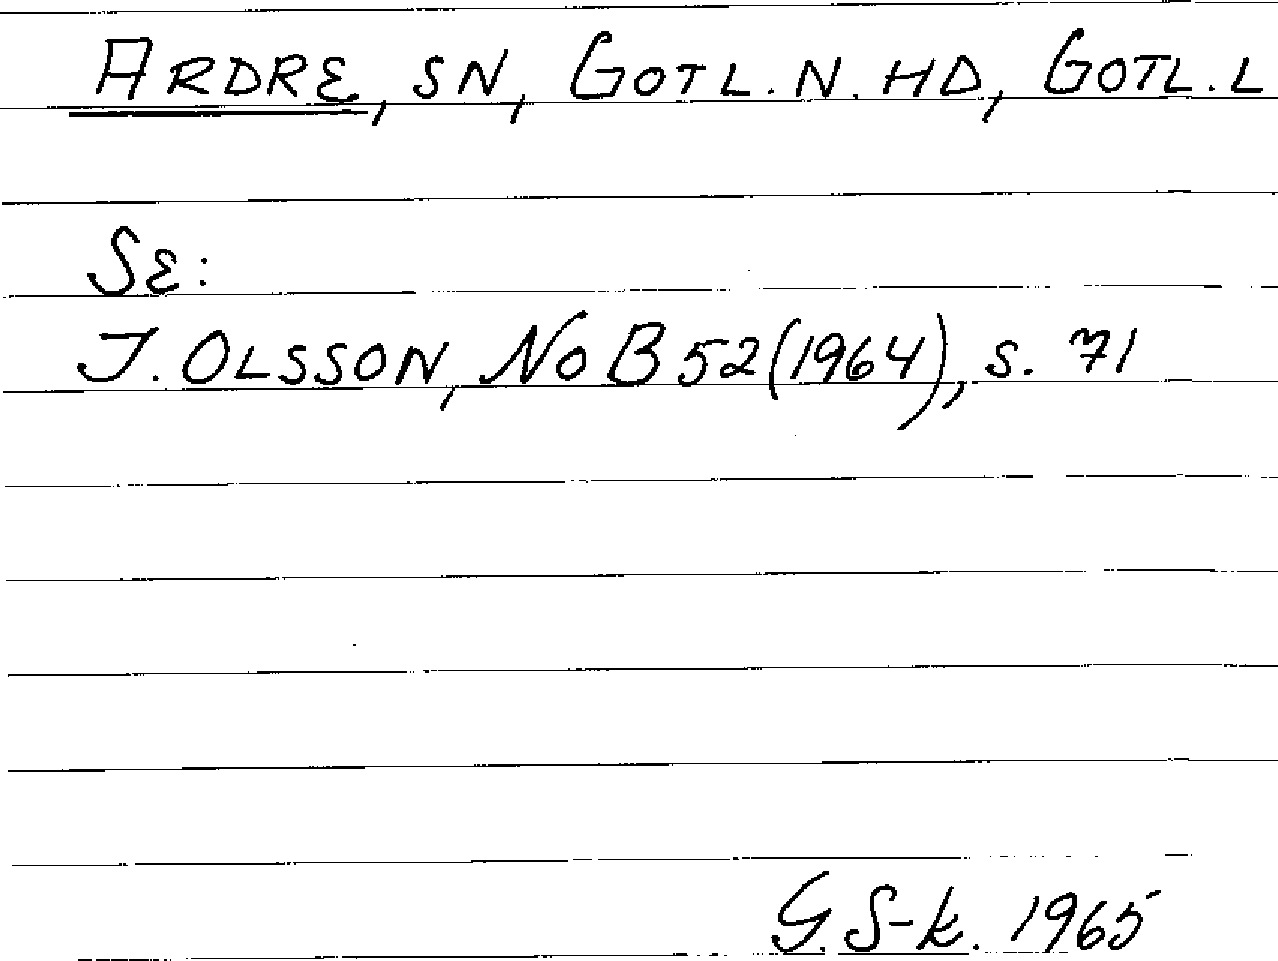 ARDRE, SN, GOTL. N. HD, GOTL. L
SE:
J. OLSSON, NoB 52 (1964), s. 71
G. S-k. 1965